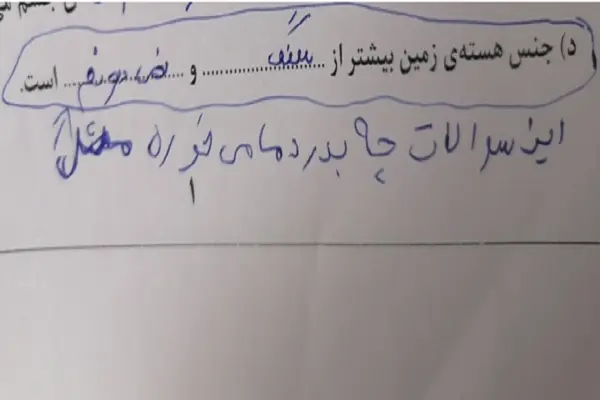 د) جنس هسته‌ی زمین بیشتر از ....سنگ.... و .... است.
این سوالات چه بدرد ما می خوره مثلا